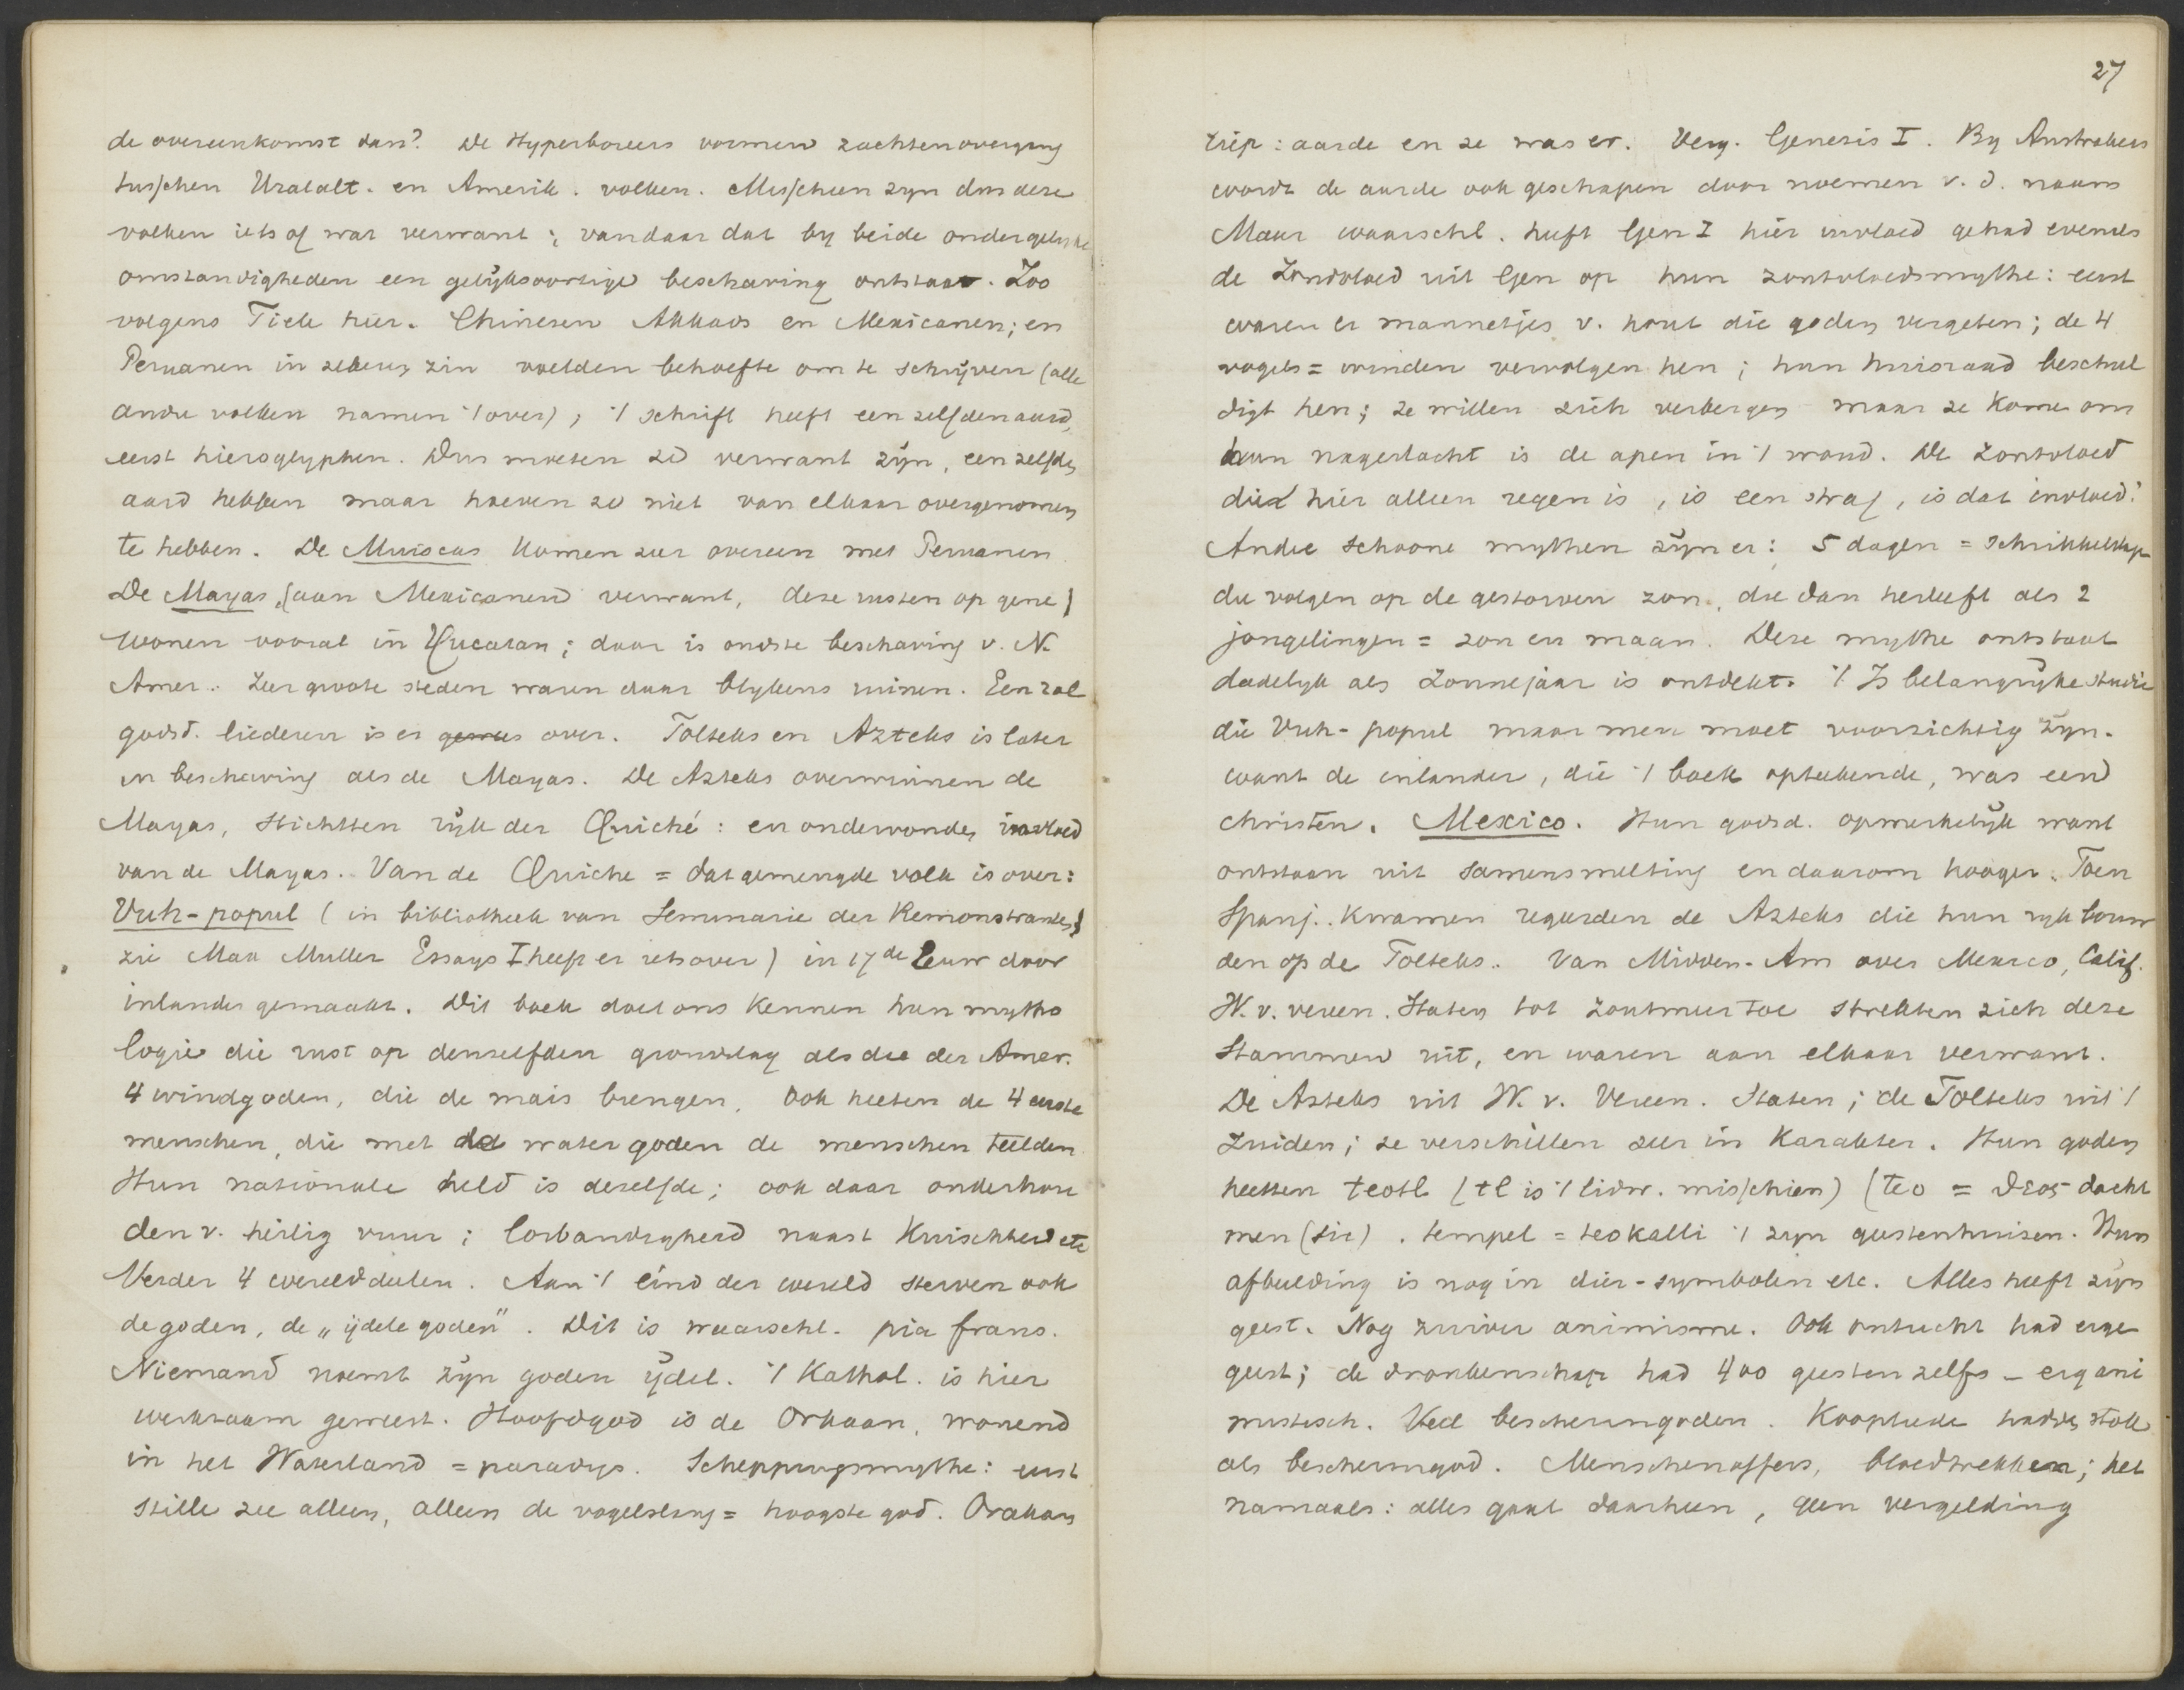 de overeenkomst dan? De Hyperboreers vormen zachten overgang
tusschen Uralalt. en Amerik. volken. Misschien zyn dus deze
volken iets of wat verwant; vandaar dat by beide onder gelyke
omstandigheden een gelijksoortige beschaving ontstaat. Zoo
volgens Tiele hier. Chinesen Akkads en Mexicanen; en
Peruanen in zekeren zin voelden behoefte om te schrijven (alle
andre volken namen 't over); 't schrift heeft een zelfden aard,
eerst hieroglyphen. Dus moeten ze verwant zijn, een zelfden
aard hebben maar hoeven ze niet van elkaar overgenomen
te hebben. De Muiscas komen zeer overeen met Peruanen.
De Mayas, (aan Mexicanen verwant, deze rusten op gene)
wonen vooral in Yucatan; daar is oudste beschaving v. N.
Amer. Zeer groote steden waren daar blykens ruinen. Een zal
godsd. liederen is er over. Tolteks en Azteks is later
in beschaving als de Mayas. De Azteks overwinnen de
Mayas, stichtten rijk der Quiché: en ondervonden invloed
van de Mayas. Van de Quiche = dat gemengde volk is over:
Vuh-popul (in bibliotheek van Seminarie der Remonstranten)
zie Max Muller Essays I heeft er iets over) in 17de Eeuw door
inlander gemaakt. Dit boek doet ons kennen hun mytho
logie die rust op denzelfden grondslag als die der Amer.
4 windgoden, die de mais brengen. Ook heeten de 4 eerste
menschen, die met de watergoden de menschen teelden.
Hun nationale held is dezelfde; ook daar onderhou
den v. heilig vuur; losbandigheid naast kuischheid etc
Verder 4 werelddeelen. Aan 't eind der wereld sterven ook
de goden, de „ijdele goden". Dit is waarschl. pia fraus.
Niemand noemt zijn goden ijdel. 't Kathol. is hier
werkzaam geweest. Hoofdgod is de Orkaan, wonend
in het Waterland = paradys. Scheppingsmythe: eerst
stille zee alleen, alleen de vogelslang = hoogste god. Orakan
27
riep: aarde en ze was er. Verg. Genesis I. By Australiers
wordt de aarde ook geschapen door noemen v. d. naam
Maar waarschl. heeft Gen I hier invloed gehad evenals
de Zondvloed uit Gen op hun zontvloedsmythe: eerst
waren er mannetjes v. hout die goden vergeten; de 4
vogels = winden vervolgen hen; hun huisraad beschul
digt hen; ze willen zich verbergen maar ze komen om
hun nageslacht is de apen in 't woud. De Zontvloed
die hier alleen regen is, is een straf, is dat invloed?
Andre schoone mythen zijn er: 5 dagen = schrikkeldagen
die volgen op de gestorven zon, die dan herleeft als 2
jongelingen = zon en maan. Deze mythe ontstaat
dadelyk als Zonnejaar is ontdekt. 't Is belangryke studie
die Vuh-popul maar men moet voorzichtig zijn.
want de inlander, die 't boek opteekende, was een
christen. Mexico. Hun godsd. opmerkelijk want
ontstaan uit samensmelting en daarom hooger. Toen
Spanj. kwamen regeerden de Azteks die hun ryk bouw
den op de Tolteks. Van Midden-Am over Mexico, Calif.
W. v. vereen. Staten tot Zoutmeer toe strekten zich deze
stammen uit, en waren aan elkaar verwant.
De Azteks uit W. v. Vereen. Staten; de Tolteks uit 't
Zuiden; ze verschillen zeer in karakter. Hun goden
heetten teotl (tl is 't lidw. misschien) (teo = θεος dacht
men (sic). tempel = teokalli 't zijn geestenhuizen. Hun
afbeelding is nog in dier-symbolen etc. Alles heeft zijn
geest. Nog zuiver animisme. Ook ontucht had eigen
geest; de dronkenschap had 400 geesten zelfs - erg ani
mistisch. Veel beschermgoden. Kooplieden hadden stok
als beschermgod. Menschenoffers, bloedtrekken; het
namaals: alles gaat daarheen, geen vergelding